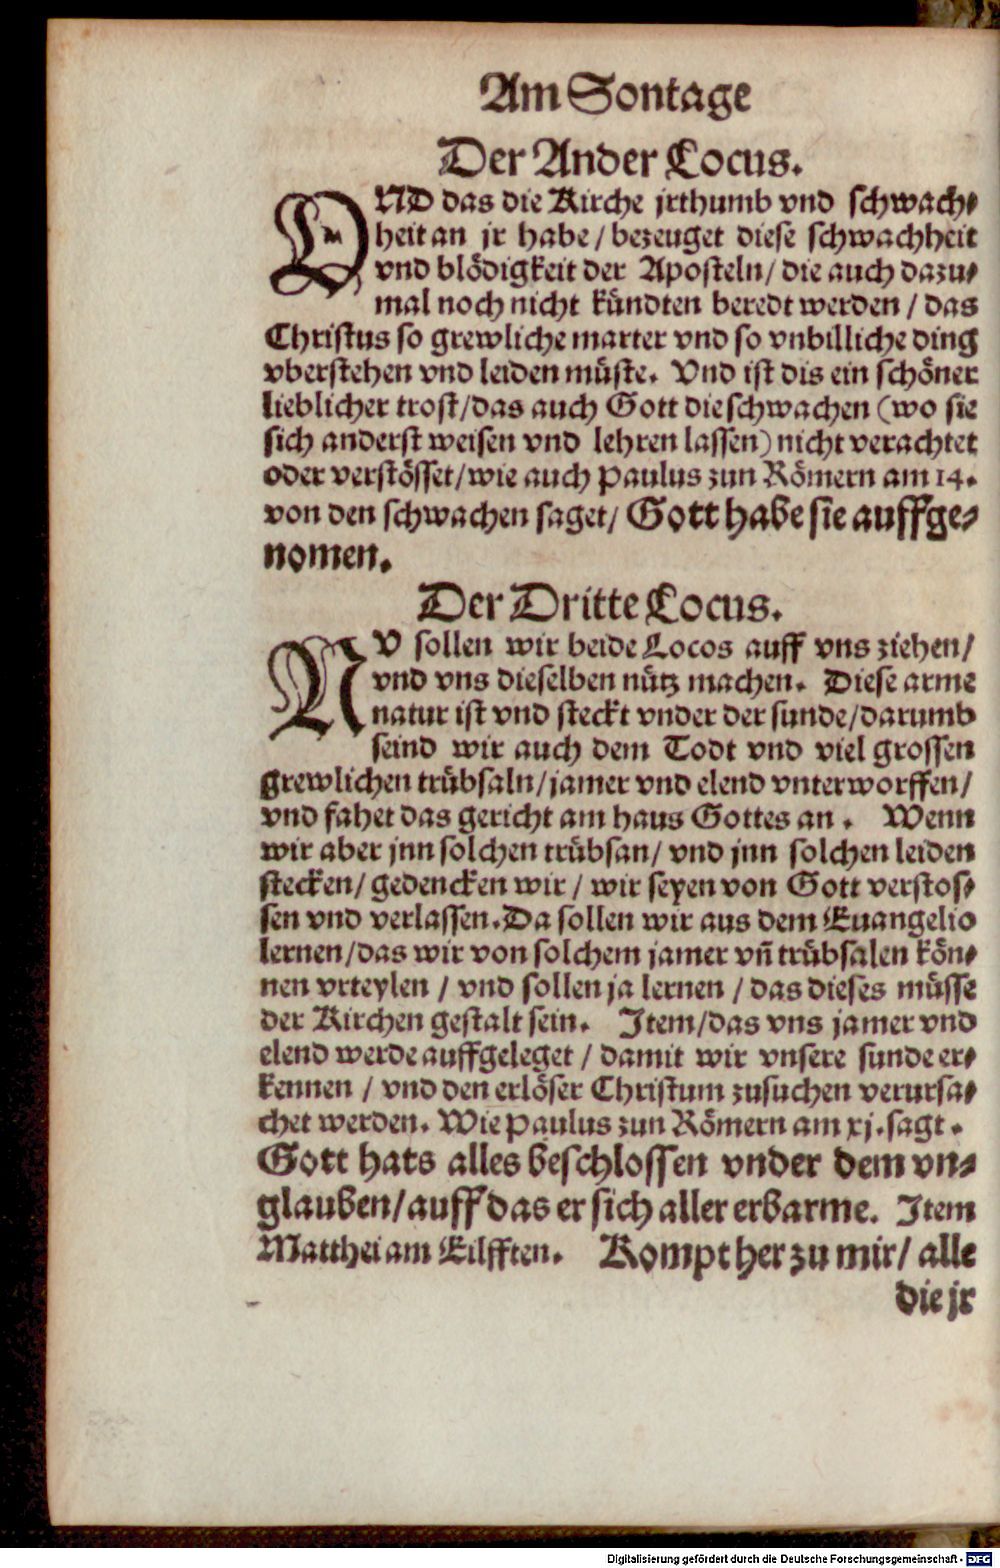 Am Sontage
Der Ander Locus.
VND das die Kirche jrthumb vnd schwach⸗
heit an jr habe / bezeuget diese schwachheit
vnd blödigkeit der Aposteln / die auch dazu⸗
mal noch nicht kündten beredt werden / das
Christus so grewliche marter vnd so vnbilliche ding
vberstehen vnd leiden müste. Vnd ist dis ein schöner
lieblicher trost / das auch Gott die schwachen (wo sie
sich anderst weisen vnd lehren lassen) nicht verachtet
oder verstösset / wie auch Paulus zun Römern am 14.
von den schwachen saget / Gott habe sie auffge⸗
nomen.
Der Dritte Locus.
NV sollen wir beide Locos auff vns ziehen /
vnd vns dieselben nütz machen. Diese arme
natur ist vnd steckt vnder der sunde / darumb
seind wir auch dem Todt vnd viel grossen
grewlichen trübsaln / jamer vnd elend vnterworffen /
vnd fahet das gericht am haus Gottes an. Wenn
wir aber jnn solchen trübsan / vnd jnn solchen leiden
stecken / gedencken wir / wir seyen von Gott verstos⸗
sen vnd verlassen. Da sollen wir aus dem Euangelio
lernen / das wir von solchem jamer vñ trübsalen kön⸗
nen vrteylen / vnd sollen ja lernen / das dieses müsse
der Kirchen gestalt sein. Item / das vns jamer vnd
elend werde auffgeleget / damit wir vnsere sunde er⸗
kennen / vnd den erlöser Christum zusuchen verursa⸗
chet werden. Wie Paulus zun Römern am xj. sagt.
Gott hats alles beschlossen vnder dem vn⸗
glauben / auff das er sich aller erbarme. Item
Matthei am Eilfften. Kompt her zu mir / alle
die jr
Digitalisierung gefördert durch die Deutsche Forschungsgemeinschaft - DFG